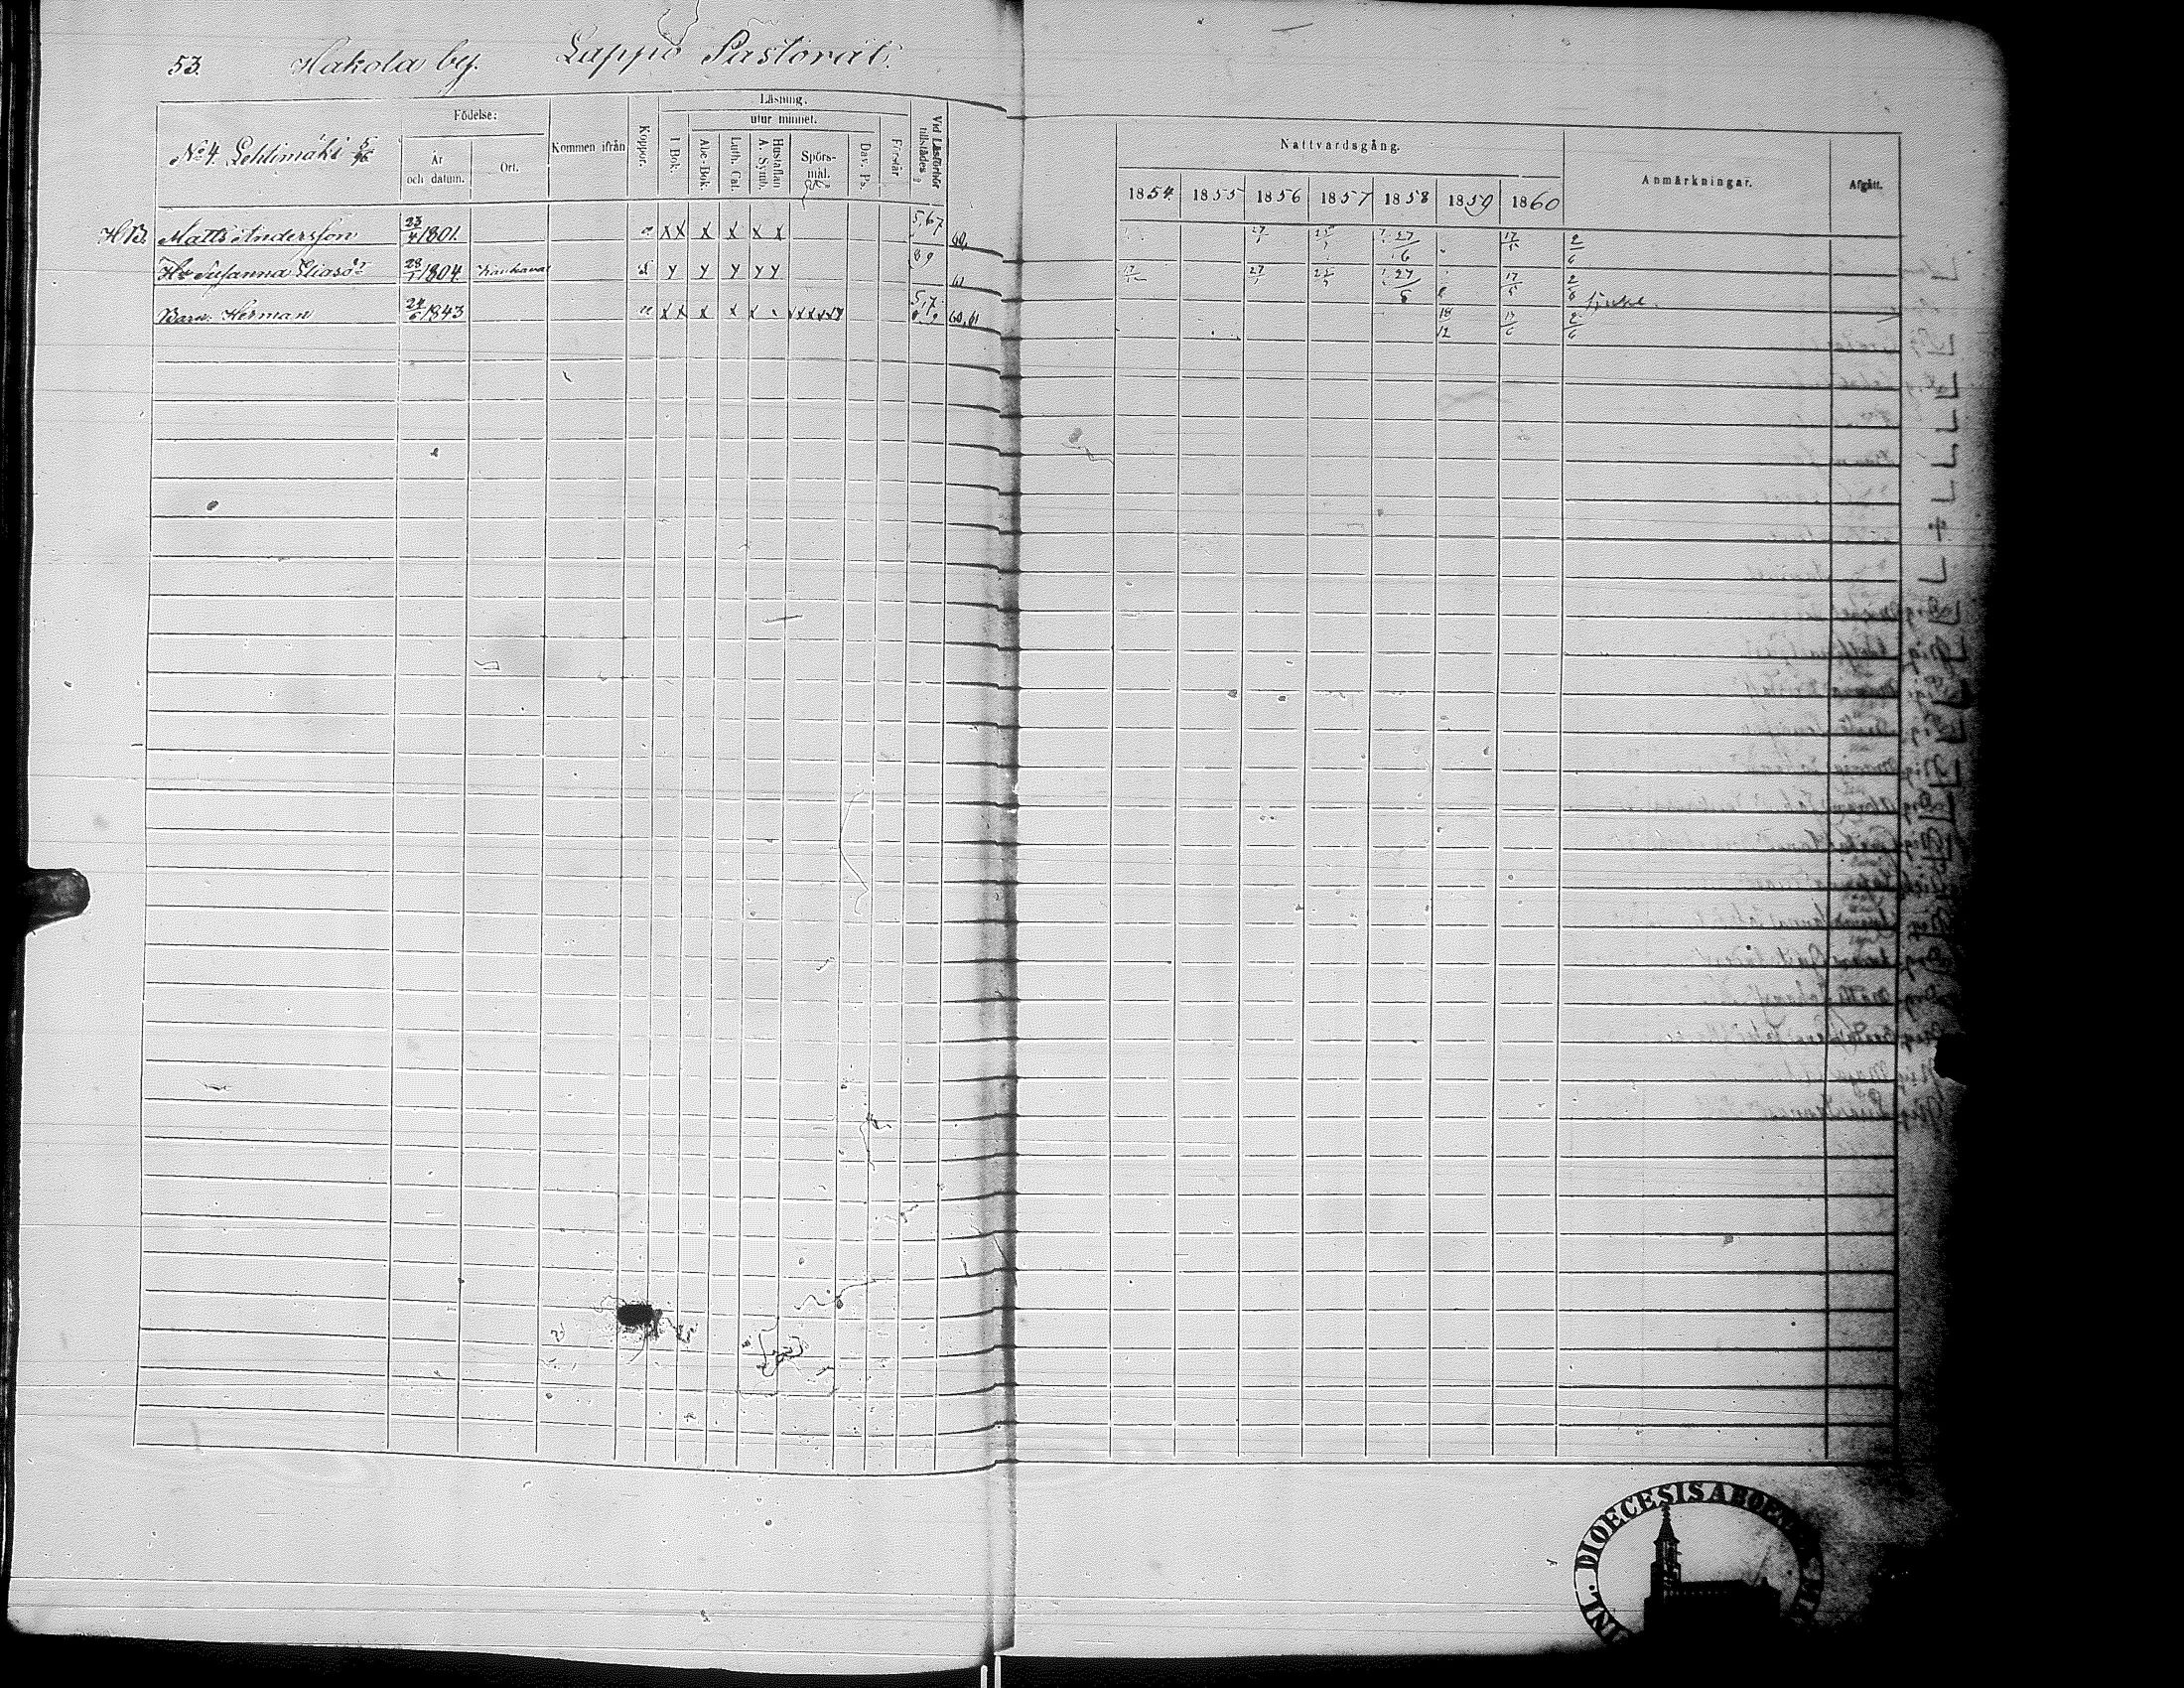 53. Hakola by. Lappo Pastorat.
Födelse: Läsning. utur minnet.
No 4. Lehtimäki 5/96 År och datum. Ort. Kommen ifrån Koppor. I Bok. Abc-Bok. Luth. Cat. Hustaflan A. Symb. Spörs-mål. Dav. Ps. Förstår Vid Läsförhör tillstädes
Nattvardsgång.
1854. 1855 1856 1857 1858 1859 1860 Anmärkningar. Afgått.
HB. Matts Andersson 23/4 1801. x x x x x x 5,6,7 60, 27/6 17/6 2/6
Hu Susanna Eliasdr 28/1 1804. Kauhava y y y y y 8 9 27/6 17/6 2/6
Barn. Herman 24/6 1843 x x x x x 5,7. 60,61 18/12 17/6 2/6
DIOECESIS ABOEN